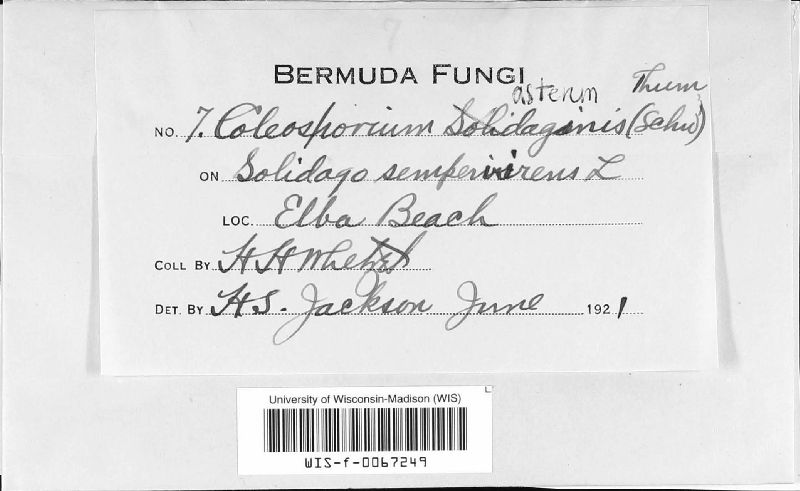 BERMUDA FUNGI
asterum Thum
NO. 7. Coleosporium Solidaginis (Schw)
ON Solidago sempervirens L
LOC. Elba Beach
COLL BY H H Whetzel
DET. BY H S. Jackson June 1921
University of Wisconsin-Madison (WIS)
WIS-f-0067249